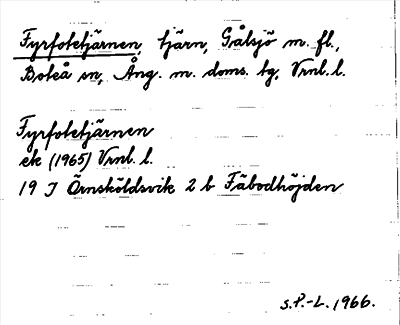 Fyrfotetjärnen, tjärn, Gålsjö m. fl.,
Boteå sn, Ång. m. doms. tg, Vrnl. l.
Fyrfotetjärnen
ek (1965) Vrnl. l.
19 J Örnsköldsvik 2 b Fäbodhöjden
S.P.-L. 1966.